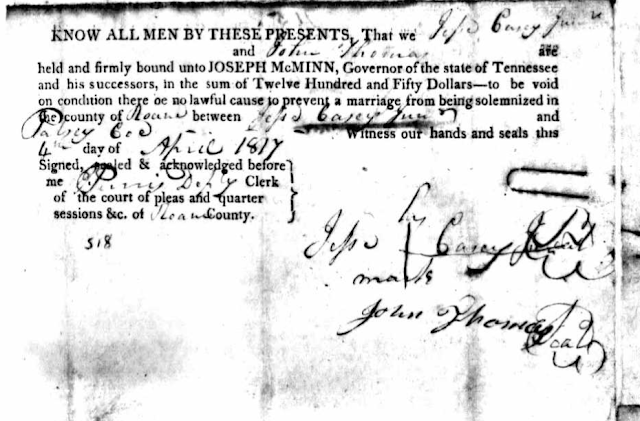 KNOW ALL MEN BY THESE PRESENTS, That we Jesse Casey Junr
and John Thomas are
held and firmly bound unto JOSEPH McMINN, Governor of the state of Tennessee
and his successors, in the sum of Twelve Hundred and Fifty Dollars—to be void
on condition there be no lawful cause to prevent a marriage from being solemnized in
the county of Roane between Jesse Casey Junr and
Patsey Witness our hands and seals this
4th day of April 1817
Signed, sealed & acknowledged before
me Clerk
of the court of pleas and quarter
sessions &c. of Roane County.
518
his
Jesse Casey Seal
mark
John Thomas Seal